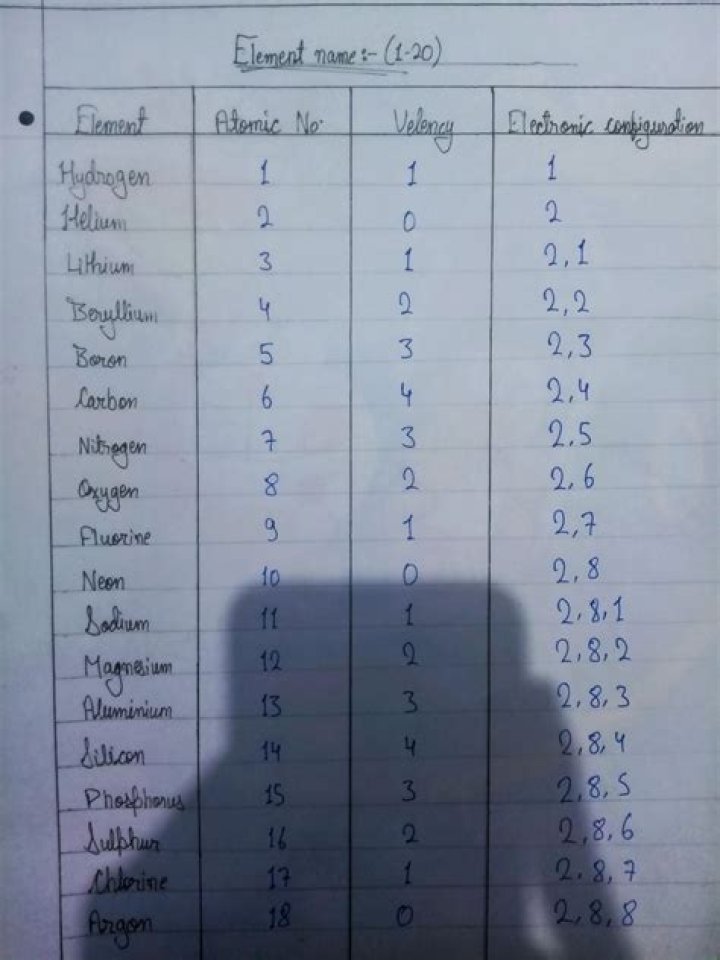 Element name:- (1-20)
Element Atomic No. Velency Electronic configuration
Hydrogen 1 1 1
Helium 2 0 2
Lithium 3 1 2,1
Beryllium 4 2 2,2
Boron 5 3 2,3
Carbon 6 4 2,4
Nitrogen 7 3 2,5
Oxygen 8 2 2,6
Fluorine 9 1 2,7
Neon 10 0 2,8
Sodium 11 1 2,8,1
Magnesium 12 2 2,8,2
Aluminium 13 3 2,8,3
Silicon 14 4 2,8,4
Phosphorus 15 3 2,8,5
Sulphur 16 2 2,8,6
Chlorine 17 1 2.8,7
Argon 18 0 2,8,8